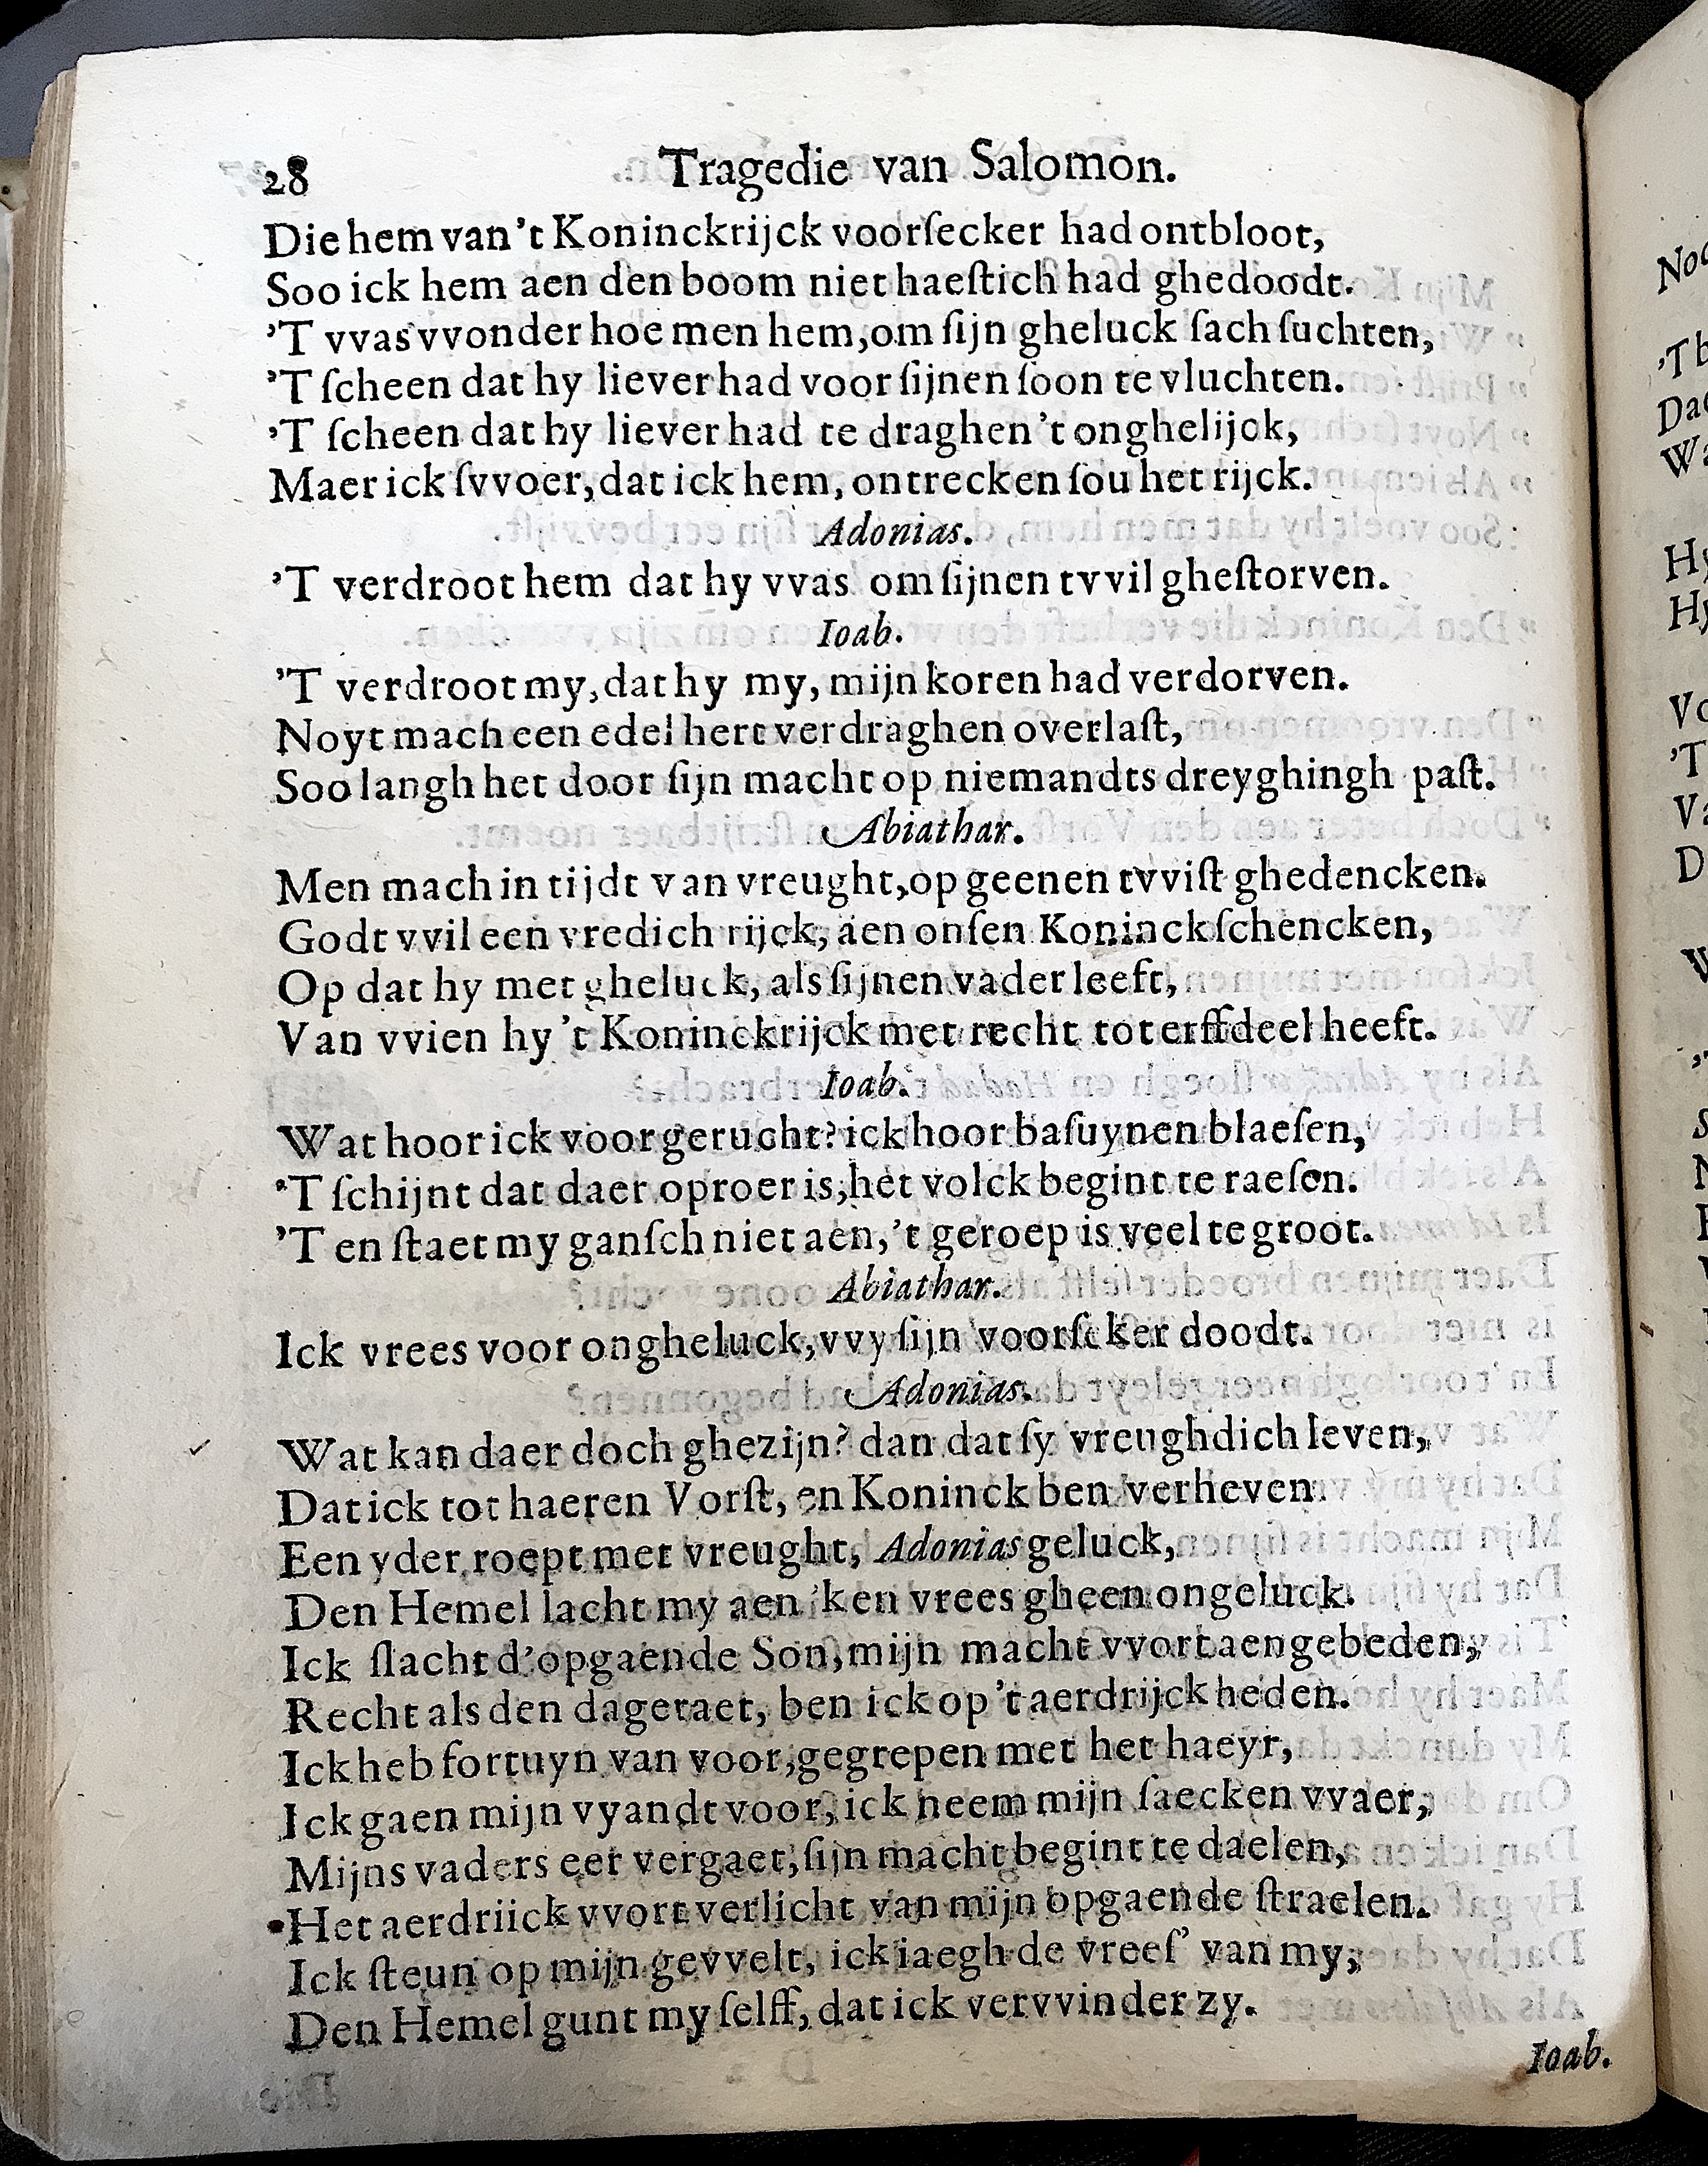 28 Tragedie van Salomon.
Die hem van 't Koninckrijck voorſecker had ontbloot,
Soo ick hem aen den boom niet haeſtich had ghedoodt.
'T vvas vvonder hoe men hem, om ſijn gheluck ſach ſuchten,
'T ſcheen dat hy liever had voor ſijnen ſoon te vluchten.
'T ſcheen dat hy liever had te draghen 't onghelijck,
Maer ick ſvvoer, dat ick hem, ontrecken ſou het rijck.
Adonias.
'T verdroot hem dat hy vvas om ſijnen tvvil gheſtorven.
Ioab.
'T verdroot my, dat hy my, mijn koren had verdorven.
Noyt mach een edel hert verdraghen overlaſt,
Soo langh het door ſijn macht op niemandts dreyghingh paſt.
Abiathar.
Men mach in tijdt van vreught, op geenen tvviſt ghedencken.
Godt vvil een vredich rijck, aen onſen Koninck ſchencken,
Op dat hy met gheluck, als ſijnen vader leeft,
Van vvien hy 't Koninckrijck met recht tot erffdeel heeft.
Ioab.
Wat hoor ick voor gerucht? ick hoor baſuynen blaeſen,
'T ſchijnt dat daer oproer is, het volck begint te raeſen.
'T en ſtaet my ganſch niet aen, 't geroep is veel te groot.
Abiathar.
Ick vrees voor ongheluck, vvy ſijn voorſeker doodt.
Adonias.
Wat kan daer doch ghezijn? dan dat ſy vreughdich leven,
Dat ick tot haeren Vorſt, en Koninck ben verheven.
Een yder roept met vreught, Adonias geluck,
Den Hemel lacht my aen 'k en vrees gheen ongeluck.
Ick ſlacht d'opgaende Son, mijn macht vvort aengebeden,
Recht als den dageraet, ben ick op 't aerdrijck heden.
Ick heb fortuyn van voor, gegrepen met het haeyr,
Ick gaen mijn vyandt voor, ick neem mijn ſaecken vvaer,
Mijns vaders eer vergaet, ſijn macht begint te daelen,
Het aerdriick vvort verlicht van mijn opgaende ſtraelen.
Ick ſteun op mijn gevvelt, ick iaegh de vreeſ' van my,
Den Hemel gunt my ſelff, dat ick vervvinder zy.
Ioab.